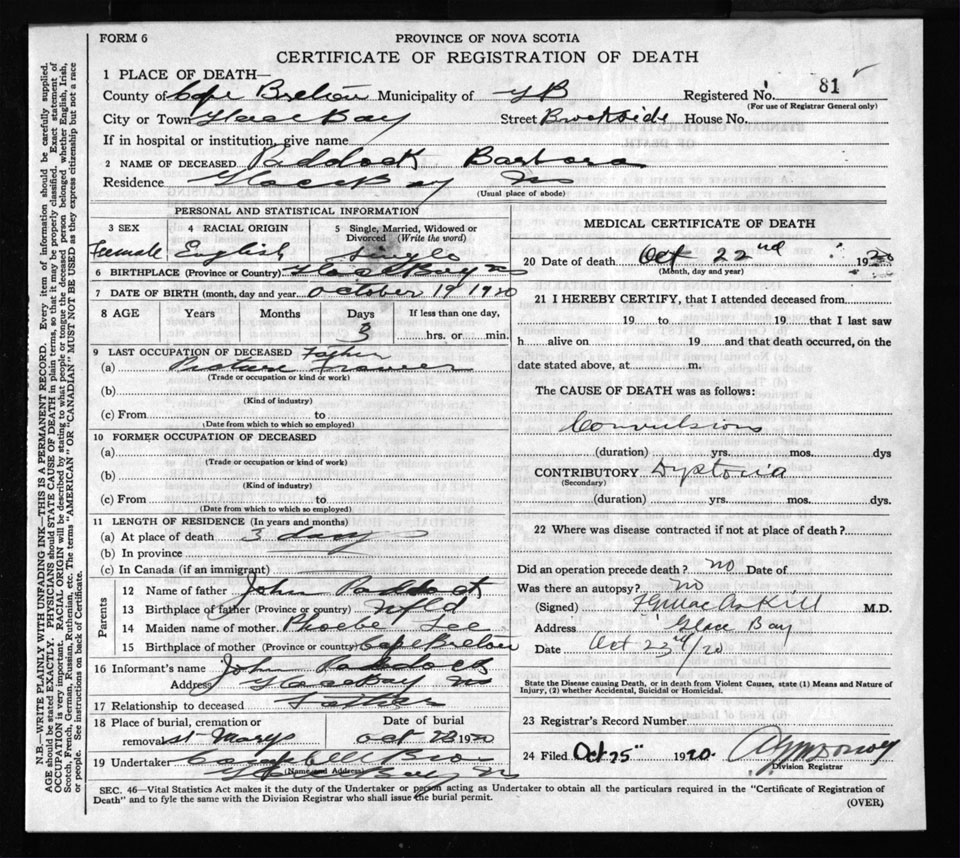 FORM 6
PROVINCE OF NOVA SCOTIA
CERTIFICATE OF REGISTRATION OF DEATH
N.B.—WRITE PLAINLY WITH UNFADING INK—THIS IS A PERMANENT RECORD. Every item of information should be carefully supplied.
AGE should be stated EXACTLY. PHYSICIANS should STATE CAUSE OF DEATH in plain terms, so that it may be properly classified. Exact statement of
OCCUPATION is very important. RACIAL ORIGIN will be described by stating to what people or tongue the deceased person belonged whether English, Irish,
Scotch, French, German, Russian, Ruthenian, etc. The terms "AMERICAN" OR "CANADIAN" MUST NOT BE USED as they express citizenship but not a race
or people. See instructions on back of Certificate.
1 PLACE OF DEATH—
County of Cape Breton Municipality of Registered No. 81
(For use of Registrar General only)
City or Town Glace Bay Street Brookside House No.
If in hospital or institution, give name
2 NAME OF DECEASED Paddock Barbara
Residence Glace Bay NS
(Usual place of abode)
PERSONAL AND STATISTICAL INFORMATION
3 SEX 4 RACIAL ORIGIN 5 Single, Married, Widowed or
Divorced (Write the word)
Female English Single
6 BIRTHPLACE (Province or Country) Glace Bay NS
7 DATE OF BIRTH (month, day and year) October 19 1920
8 AGE Years Months Days If less than one day,
3 hrs. or min.
9 LAST OCCUPATION OF DECEASED Father
(a) Picture Framer
(Trade or occupation or kind or work)
(b)
(Kind of industry)
(c) From to
(Date from which to which so employed)
10 FORMER OCCUPATION OF DECEASED
(a)
(Trade or occupation or kind of work)
(b)
(Kind of industry)
(c) From to
(Date from which to which so employed)
11 LENGTH OF RESIDENCE (In years and months)
(a) At place of death 3 days
(b) In province
(c) In Canada (if an immigrant)
Parents
12 Name of father John Paddock
13 Birthplace of father (Province or country) Nfld
14 Maiden name of mother Phoebe Lee
15 Birthplace of mother (Province or country) Cape Breton
16 Informant's name John Paddock
Address Glace Bay NS
17 Relationship to deceased Father
18 Place of burial, cremation or Date of burial
removal St Marys Oct 23 1920
19 Undertaker Campbell Bros
(Name and Address) Glace Bay NS
MEDICAL CERTIFICATE OF DEATH
20 Date of death Oct 22nd 1920
(Month, day and year)
21 I HEREBY CERTIFY, that I attended deceased from
19 to 19 that I last saw
h alive on 19 and that death occurred, on the
date stated above, at m.
The CAUSE OF DEATH was as follows:
Convulsions
(duration) yrs. mos. dys
CONTRIBUTORY Dystocia
(Secondary)
(duration) yrs. mos. dys.
22 Where was disease contracted if not at place of death?
Did an operation precede death? no Date of
Was there an autopsy? no
(Signed) MacAskill M.D.
Address Glace Bay
Date Oct 23rd/20
State the Disease causing Death, or in death from Violent Causes, state (1) Means and Nature of
Injury, (2) whether Accidental, Suicidal or Homicidal.
23 Registrar's Record Number
24 Filed Oct 25" 1920.
Division Registrar
SEC. 46—Vital Statistics Act makes it the duty of the Undertaker or person acting as Undertaker to obtain all the particulars required in the "Certificate of Registration of
Death" and to fyle the same with the Division Registrar who shall issue the burial permit.
(OVER)